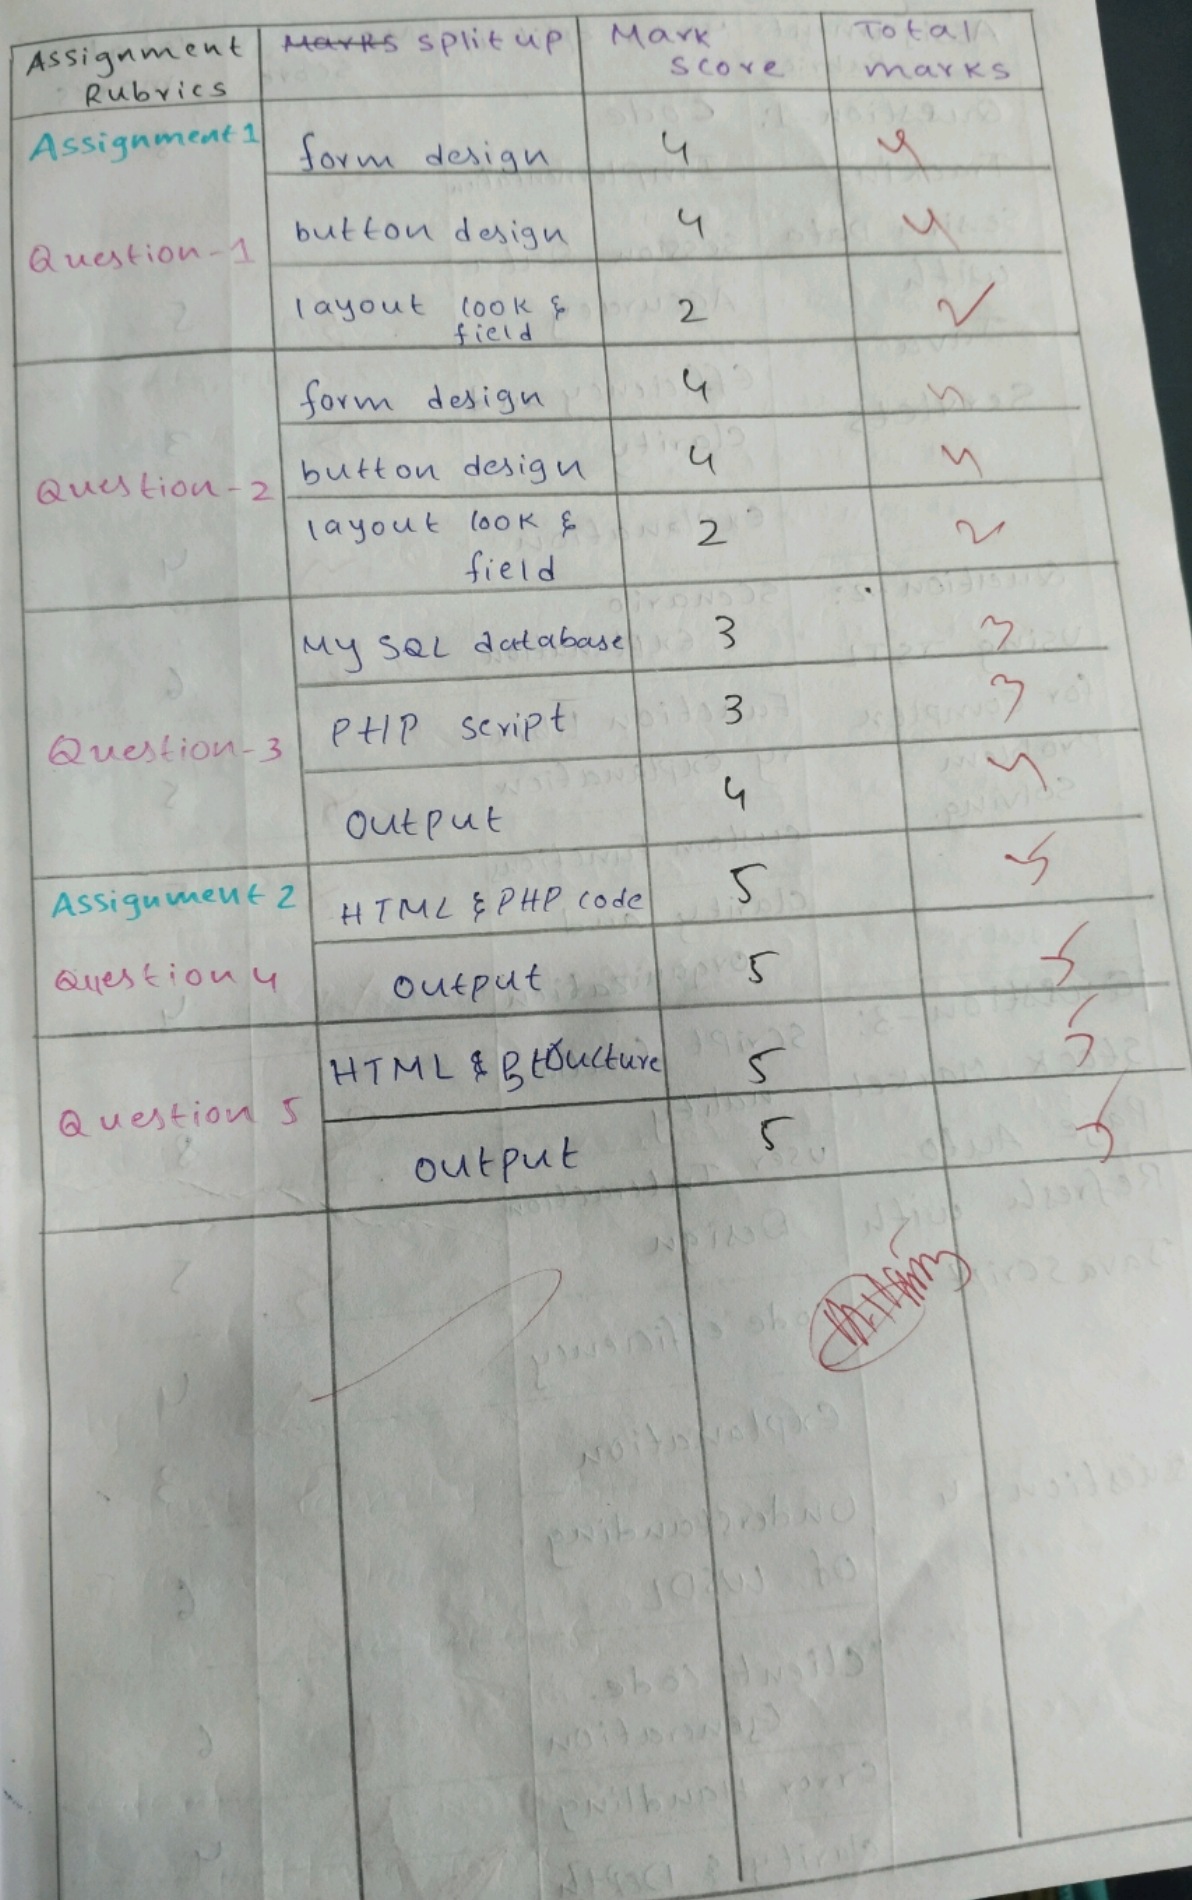 Assignment Rubrics | Marks split up | Mark score | Total marks
Assignment 1 | form design | 4 | 4
Question-1 | button design | 4 | 4
layout look & field | 2 | 2
Question-2 | form design | 4 | 4
button design | 4 | 4
layout look & field | 2 | 2
Question-3 | My SQL database | 3 | 3
PHP script | 3 | 3
output | 4 | 4
Assignment 2 | HTML & PHP code | 5 | 5
Question 4 | output | 5 | 5
Question 5 | HTML & structure | 5 | 5
output | 5 | 5